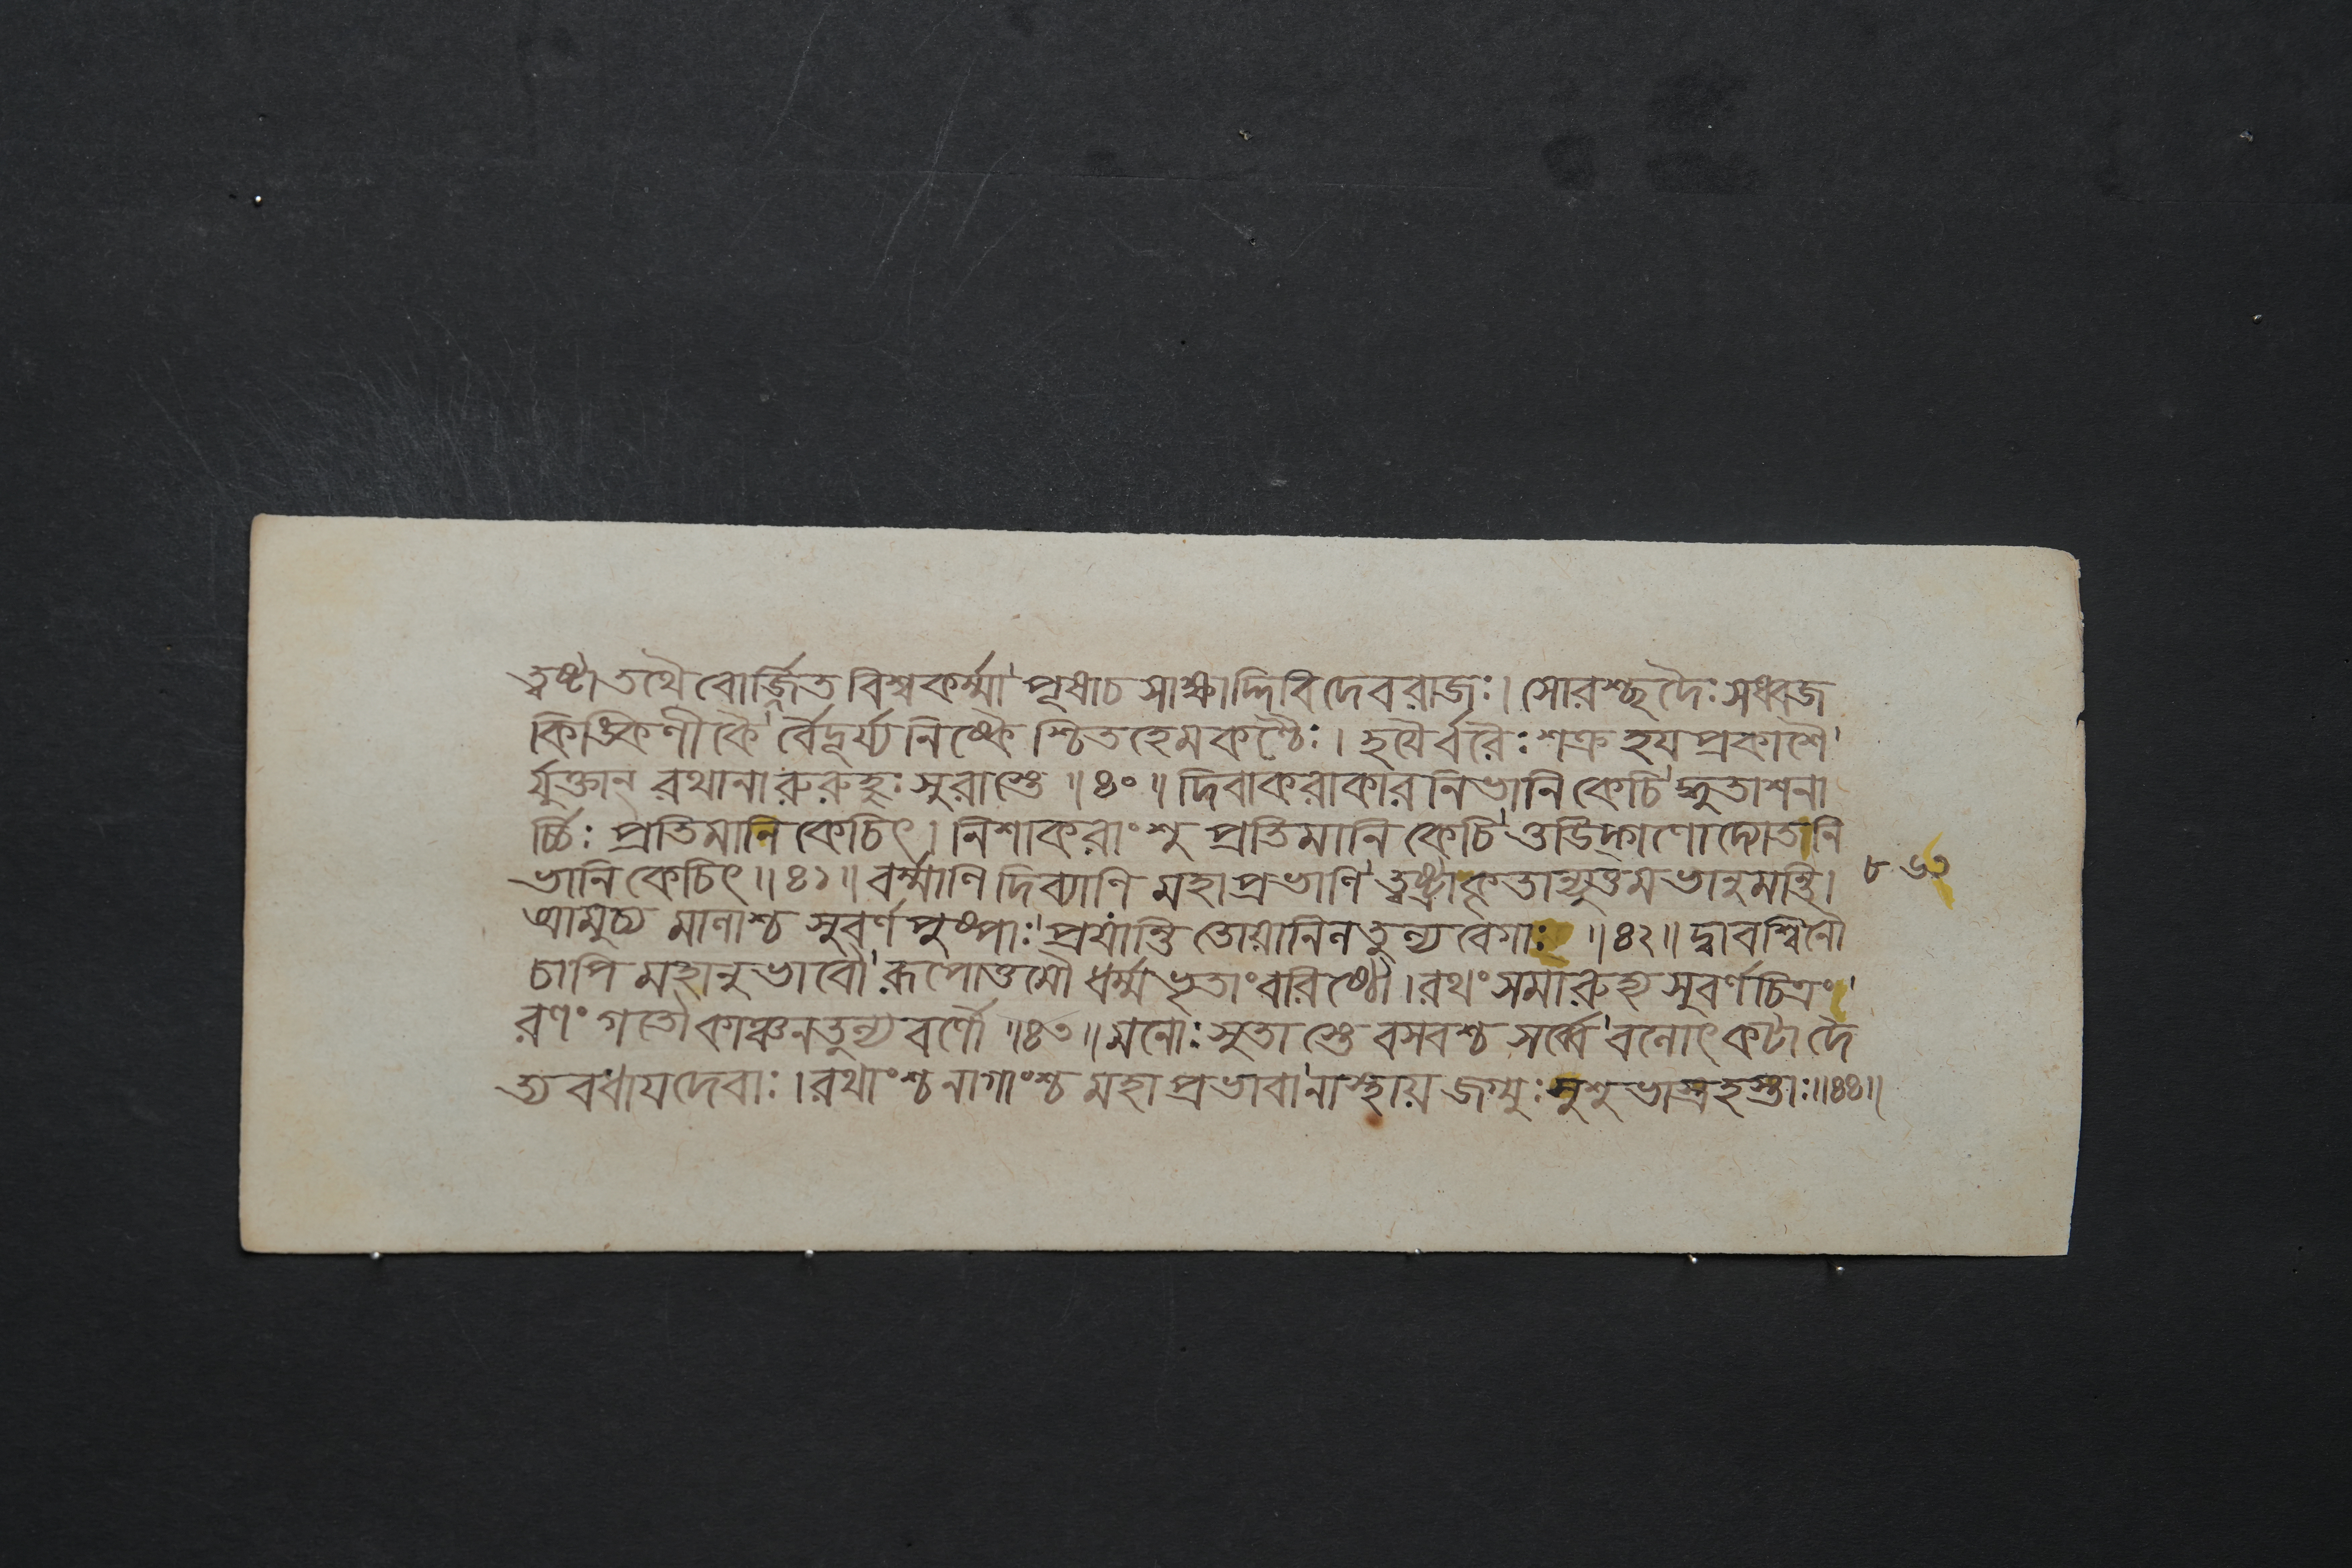 ত্বষ্টা তথৈবোর্জ্জিত বিশ্বকর্ম্মা' পূষাচ সাক্ষাদ্দিবি দেবরাজঃ। সোরশ্ছদৈঃ সধ্বজ
কিঙ্কিণীকৈ' র্বৈদূর্য্যনিষ্কৈ শ্চিতহেমকণ্ঠৈঃ। হযৈর্বরৈঃ শত্রুহয প্রকাশৈ'
র্যুক্তান্ রথানারুরুহুঃ সুরাস্তে ॥৪০॥ দিবাকরাকার নিভানি কেচি' দ্ধুতাশনা
র্চ্চিঃ প্রতিমানি কেচিৎ। নিশাকরাংশু প্রতিমানি কেচি' ত্তডিদ্গণোদ্যোতনি
ভানি কেচিৎ ॥৪১॥ বর্ম্মাণি দিব্যানি মহাপ্রভাণি' ত্বষ্ট্রাকৃতান্যুত্তমভানুমন্তি। ৮৬৩
আমুচ্য মানাশ্চ সুবর্ণপুষ্পাঃ' প্রযান্তি তোয়ানিলতুল্য বেগাঃ ॥৪২॥ দ্বাবশ্বিনৌ
চাপি মহানুভাবৌ' রূপোত্তমৌ ধর্ম্মভৃতাং বরিষ্ঠৌ। রথং সমারুহ্য সুবর্ণচিত্রং'
রণং গতৌ কাঞ্চনতুল্য বর্ণৌ ॥৪৩॥ মনোঃ সুতাস্তে বসবশ্চ সর্ব্বে' বলোৎকটা দৈ
ত্য বধায দেবাঃ। রথাংশ্চ নাগাংশ্চ মহাপ্রভাবা'নাস্থায় জগ্মুঃ সুশুভাস্ত্রহস্তাঃ॥৪৪॥